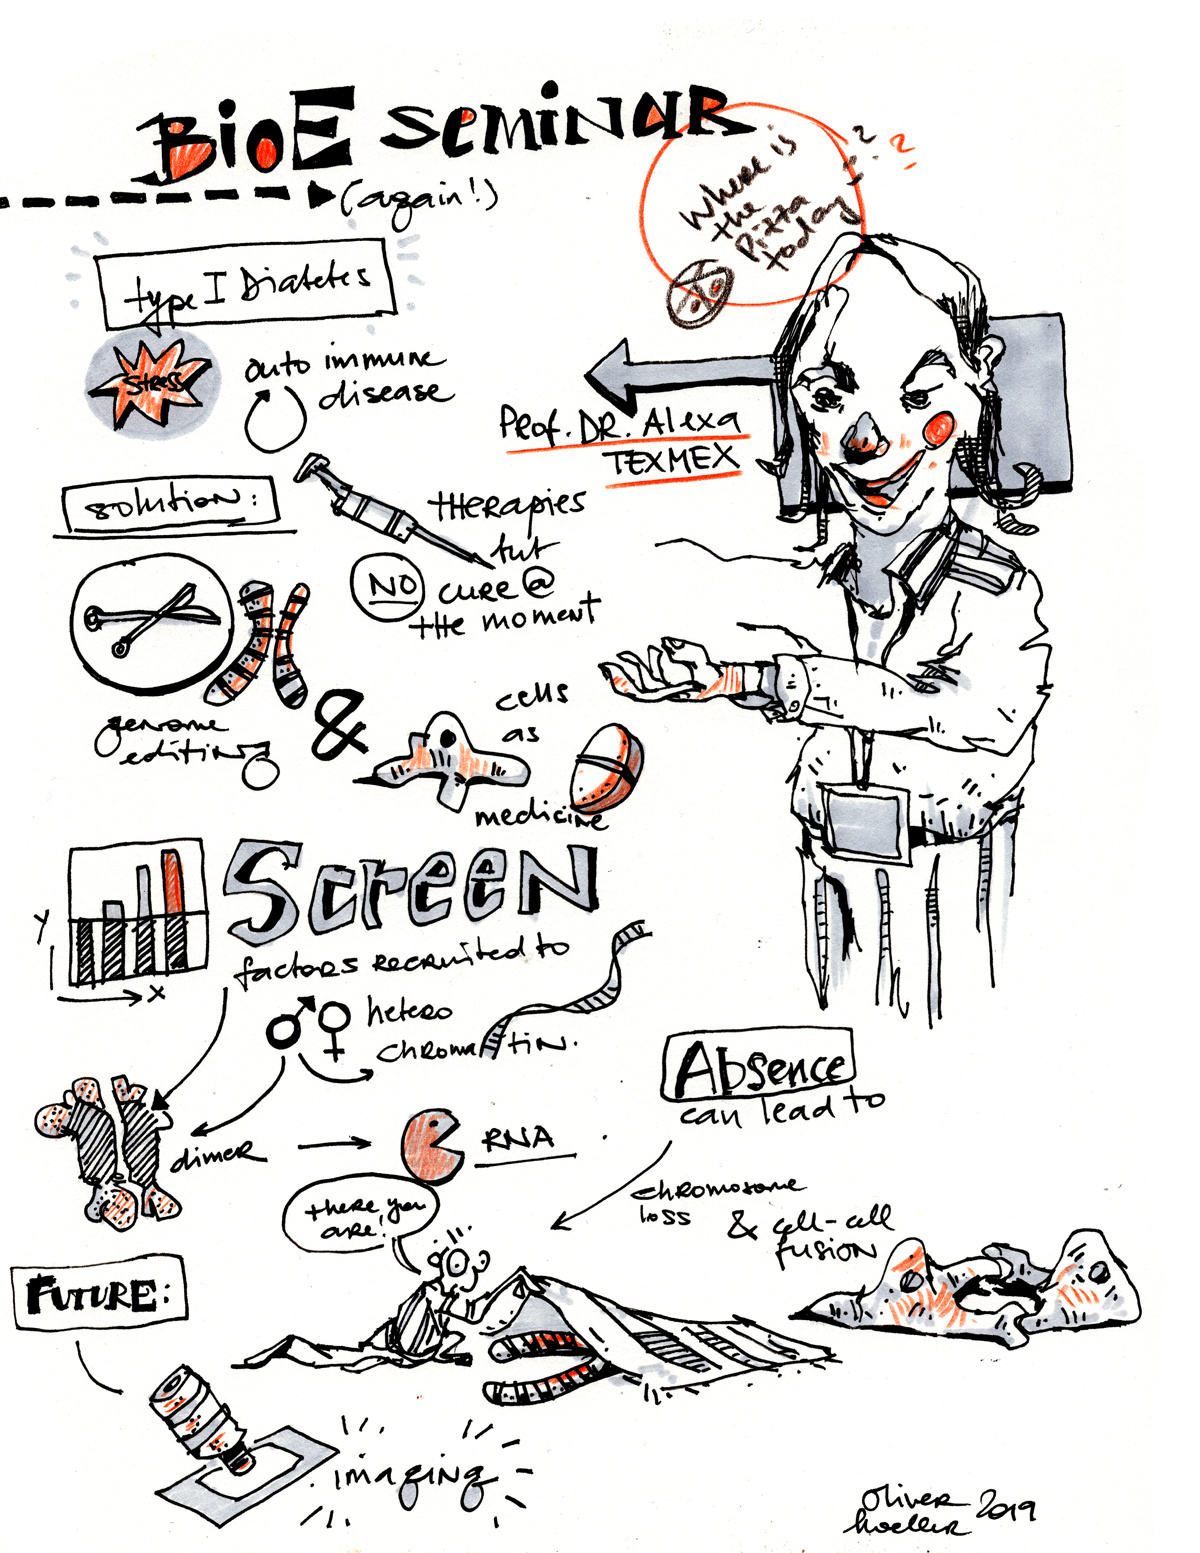 BioE seminar
(again!)
Where is
the
Pizza
today
? ? ?
type I Diabetes
stress
auto immune
disease
Prof. DR. Alexa
TEXMEX
solution:
THERapies
but
NO cure @
the moment
genome
editing
&
cells
as
medicine
Screen
Y
X
factors recruited to
hetero
chromatin.
Absence
can lead to
dimer
RNA
there you
are!
chromosome
loss
& cell-cell
fusion
Future:
imaging
Oliver
hoeller 2019